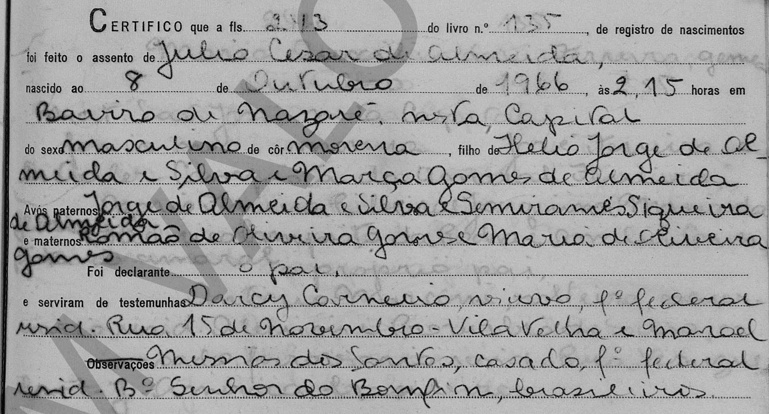 CERTIFICO que a fls. 243 do livro n.º 135, de registro de nascimentos
foi feito o assento de Julio Cesar de Almeida,
nascido ao 8 de Outubro de 1966, às 2,15 horas em
Bairro de Nazaré, nesta Capital
do sexo masculino de côr morena, filho de Helio Jorge de Al-
meida e Silva e Março Gomes de Almeida
Avós paternos Jorge de Almeida e Silva e Semirames Siqueira
de Almeida
e maternos Romão de Oliveira Gomes e Maria de Oliveira
Gomes
Foi declarante o pai.
e serviram de testemunhas Darcy Carneiro, viuvo, fº federal
resid. Rua 15 de Novembro - Vila Velha e Manoel
Observações Messias dos Santos, casado, fº federal
resid. Bº Senhor do Bomfim, brasileiros